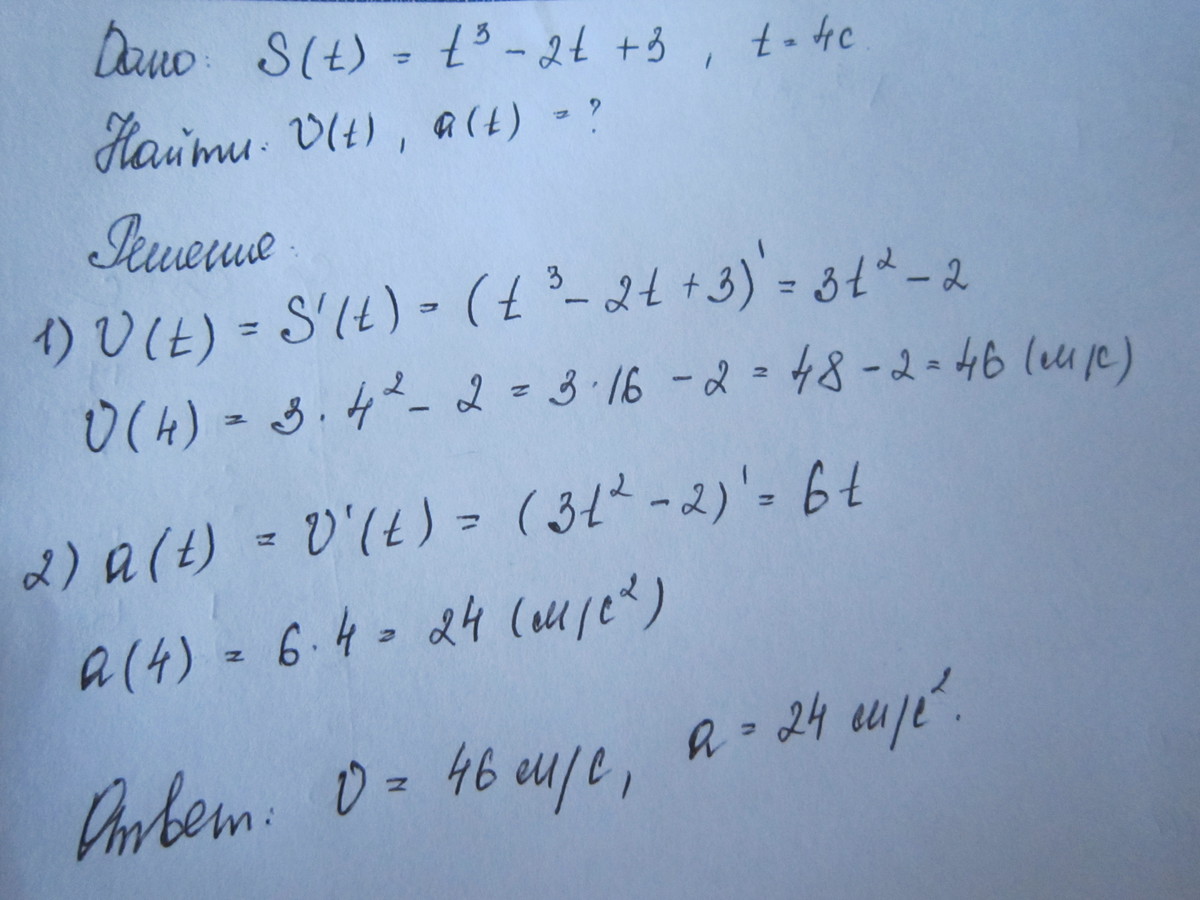 Дано: S(t) = t³ - 2t + 3 , t = 4с.
Найти: υ(t) , a(t) = ?
Решение:
1) υ(t) = S'(t) = (t³ - 2t + 3)' = 3t² - 2
υ(4) = 3 · 4² - 2 = 3 · 16 - 2 = 48 - 2 = 46 (м/с)
2) a(t) = υ'(t) = (3t² - 2)' = 6t
a(4) = 6 · 4 = 24 (м/с²)
Ответ: υ = 46 м/с, a = 24 м/с².